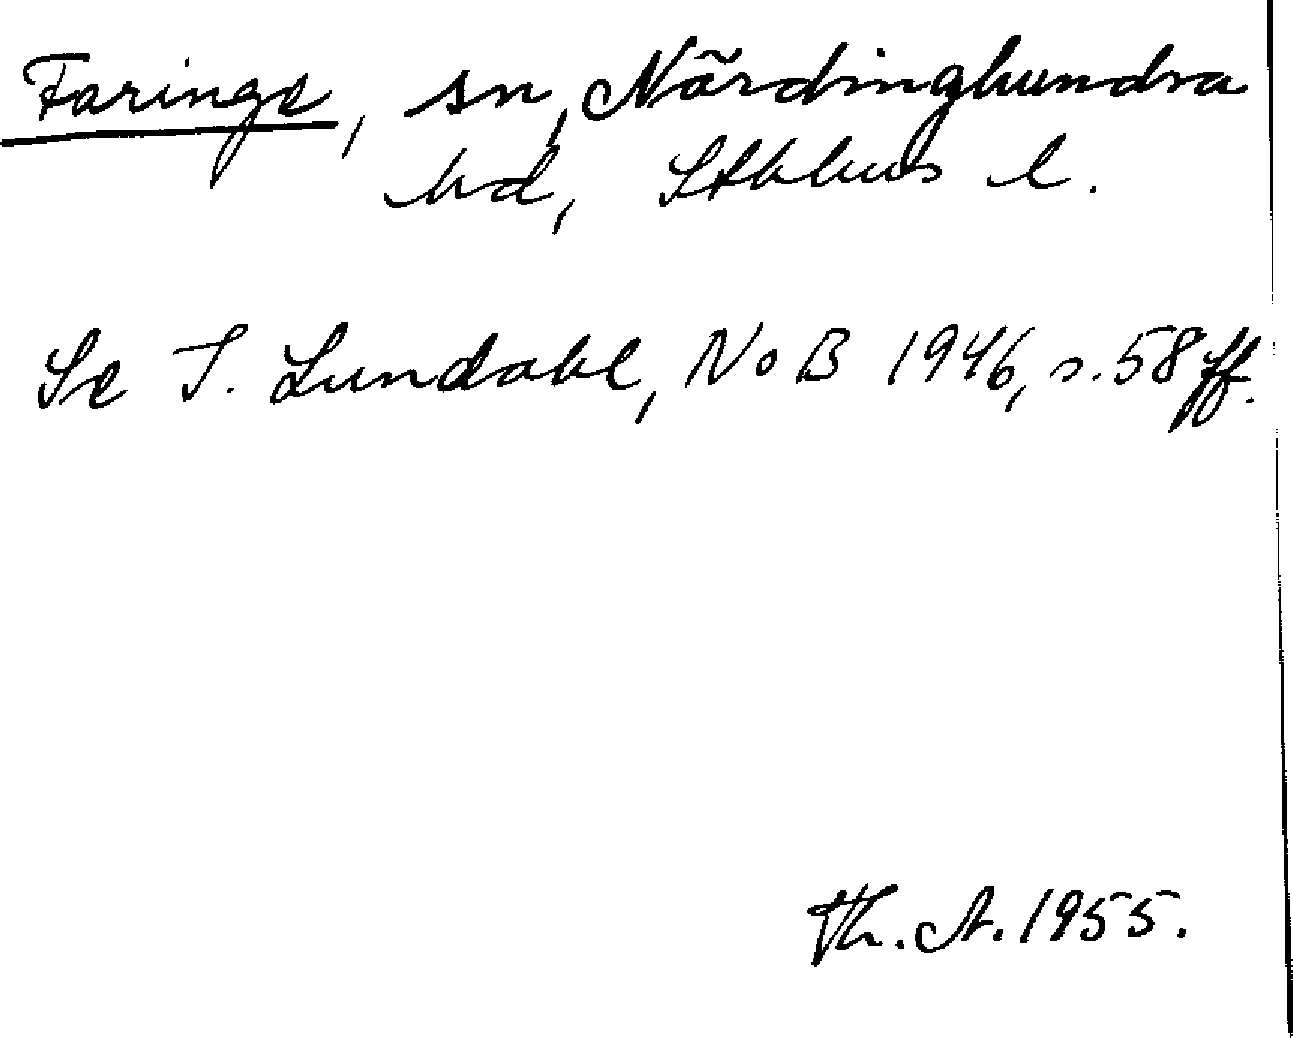 Faringe, sn, Närdinghundra
hd, Sthlms l.
Se I. Lundahl, NoB 1946, s. 58 ff.
Th. A. 1955.